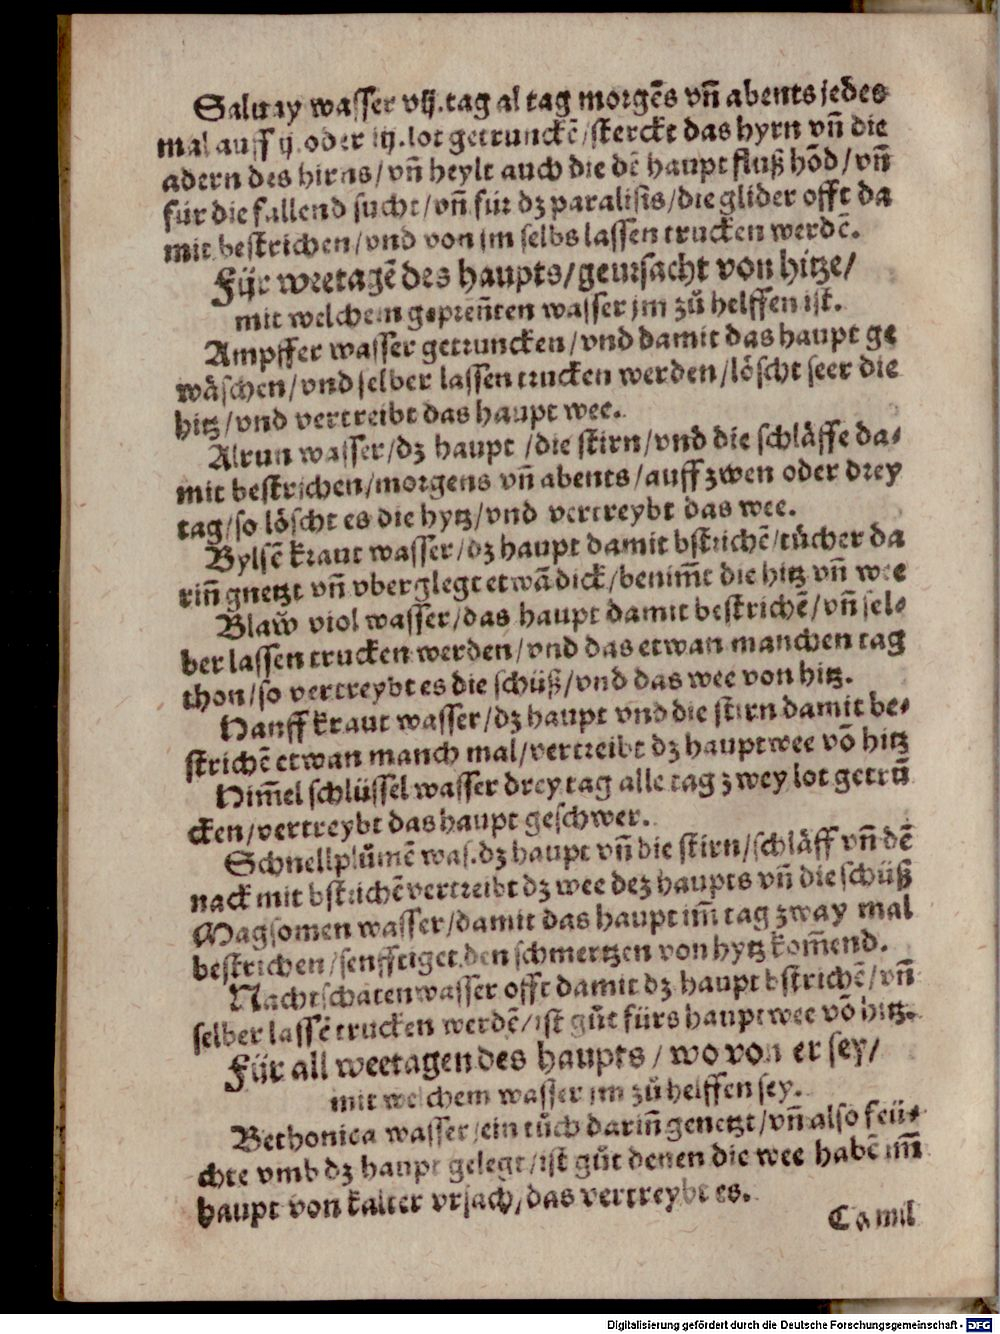 Saluay wasser vij.tag al tag morgēs vñ abents jedes
mal auff ij.oder iij.lot getrunckē/sterckt das hyrn vñ die
adern des hirns/vñ heylt auch die dē haupt fluß hōd/vñ
für die fallend sucht/vñ für dz paralisis/die glider offt da
mit bestrichen/vnd von jm selbs lassen trucken werdē.
Für weetagē des haupts/geursacht von hitze/
mit welchem geprēnten wasser jm zů helffen ist.
Ampffer wasser getruncken/vnd damit das haupt ge
wäschen/vnd selber lassen trucken werden/löscht seer die
hitz/vnd vertreibt das haupt wee.
Alrun wasser/dz haupt /die stirn/vnd die schläffe da⸗
mit bestrichen/morgens vñ abents/auff zwen oder drey
tag/so löscht es die hytz/vnd vertreybt das wee.
Bylsē kraut wasser/dz haupt damit bstrichē/tücher da
riñ gnetzt vñ vberglegt etwā dick/benim̄t die hitz vñ wee
Blaẘ viol wasser/das haupt damit bestrichē/vñ sel⸗
ber lassen trucken werden/vnd das etwan manchen tag
thon/so vertreybt es die schüß/vnd das wee von hitz.
Hanff kraut wasser/dz haupt vnd die stirn damit be⸗
strichē etwan manch mal/vertreibt dz hauptwee vō hitz
Him̄el schlüssel wasser drey tag alle tag zwey lot getrū
cken/vertreybt das haupt geschwer.
Schnellplůmē was.dz haupt vñ die stirn/schläff vñ dē
nack mit bstrichē vertreibt dz wee dez haupts vñ die schüß
Magsomen wasser/damit das haupt im̄ tag zway mal
bestrichen/senfftiget den schmertzen von hytz kom̄end.
Nachtschaten wasser offt damit dz haupt bstrichē/vñ
selber lassē trucken werdē/ist gůt fürs hauptwee vō hitz.
Für all weetagen des haupts/wo von er sey/
mit welchem wasser jm zů helffen sey.
Bethonica wasser/ein tůch dariñ genetzt/vñ also feü⸗
chte vmb dz haupt gelegt/ist gůt denen die wee habē im̄
haupt von kalter vrsach/das vertreybt es.
Camil
Digitalisierung gefördert durch die Deutsche Forschungsgemeinschaft - DFG